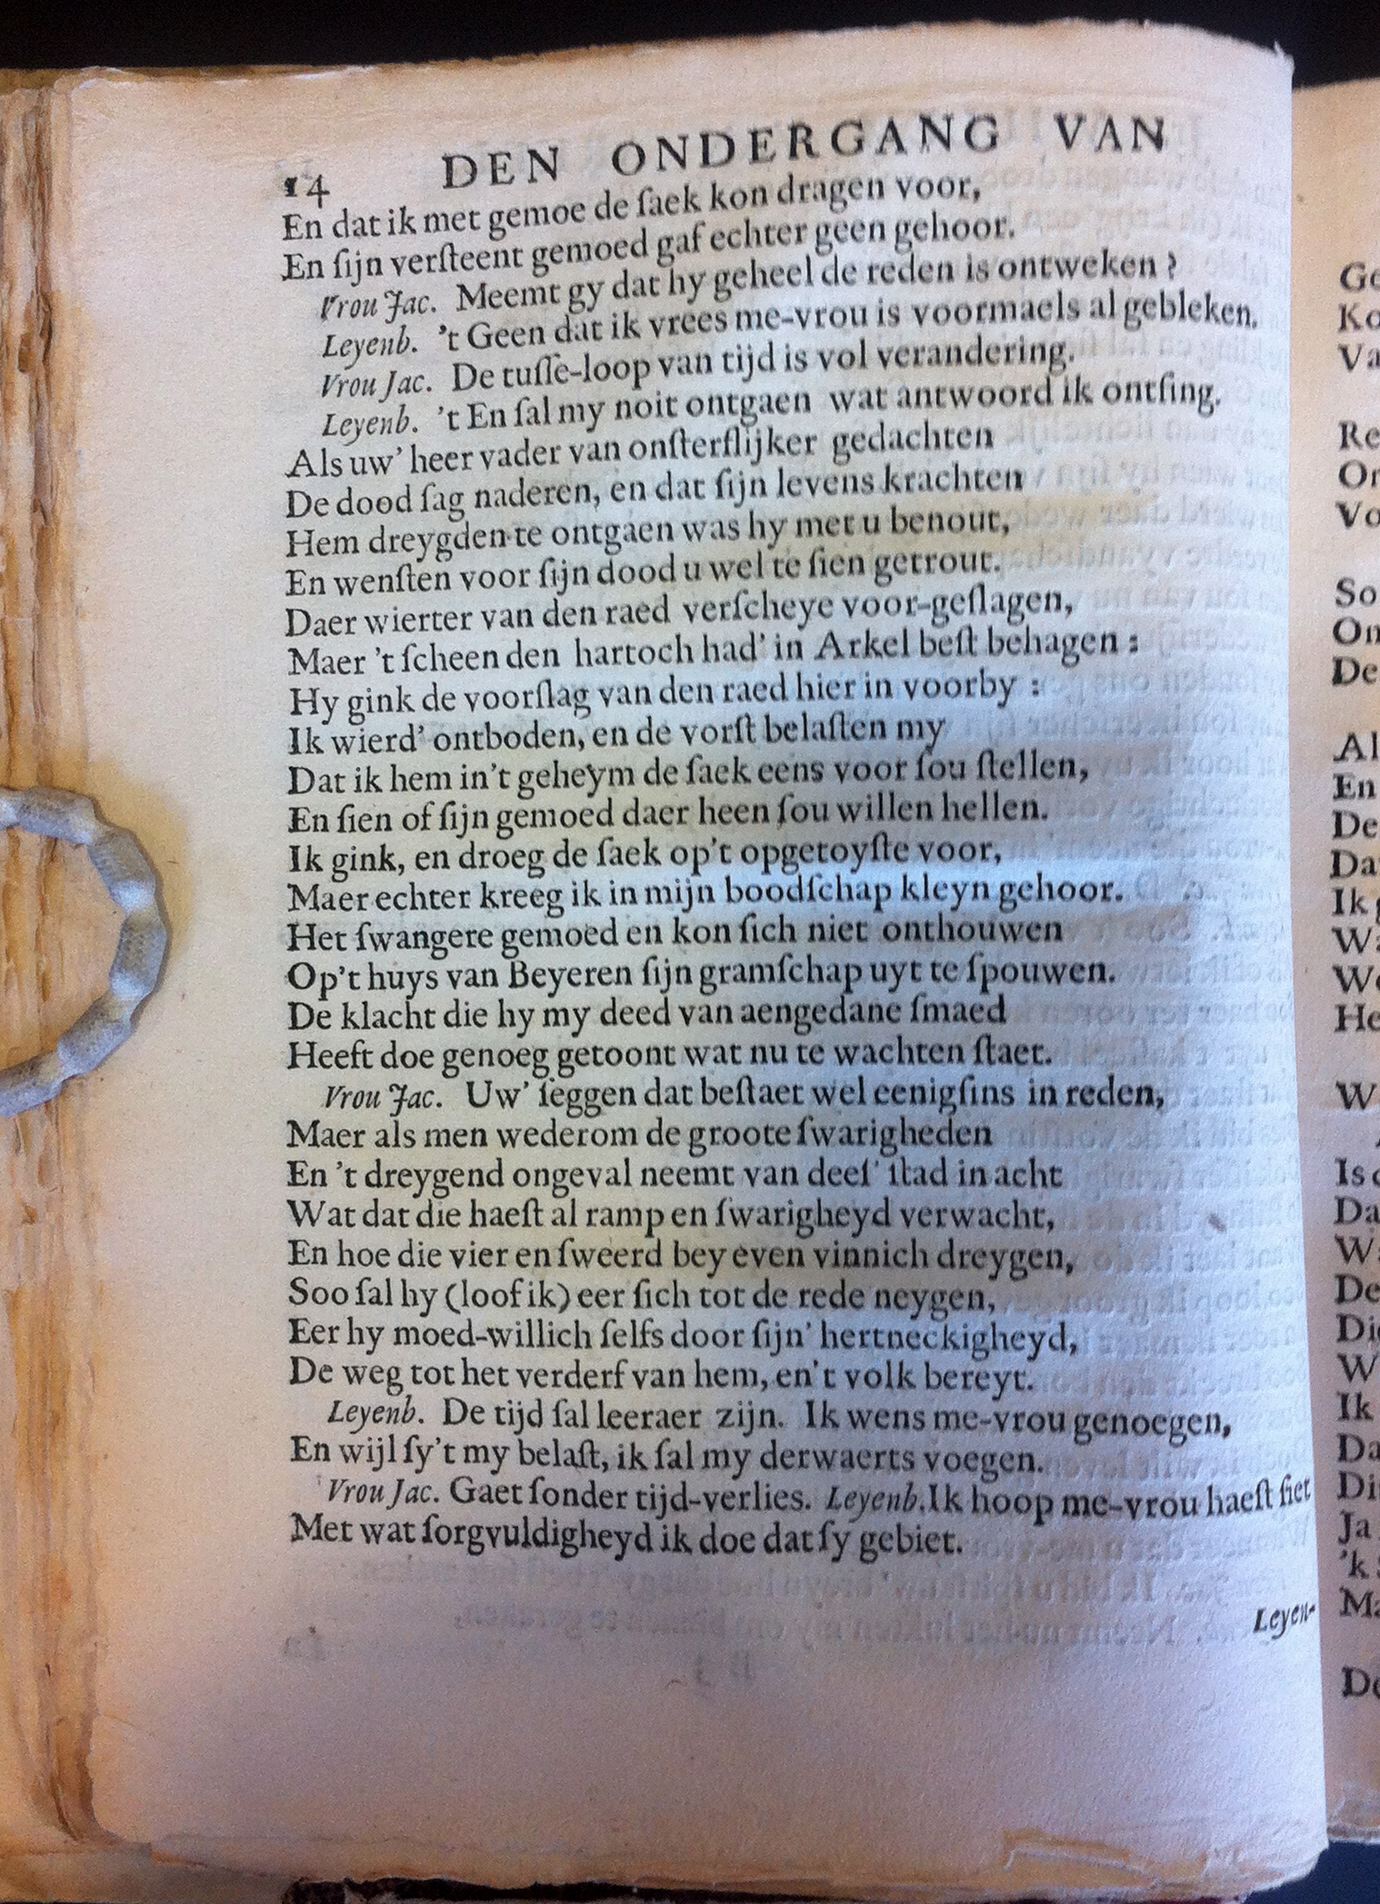 14 DEN ONDERGANG VAN
En dat ik met gemoe de ſaek kon dragen voor,
En ſijn verſteent gemoed gaf echter geen gehoor.
Vrou Jac. Meemt gy dat hy geheel de reden is ontweken?
Leyenb. 't Geen dat ik vrees me-vrou is voormaels al gebleken.
Vrou Jac. De tuſſe-loop van tijd is vol verandering.
Leyenb. 't En ſal my noit ontgaen wat antwoord ik ontfing.
Als uw' heer vader van onſterflijker gedachten
De dood ſag naderen, en dat ſijn levens krachten
Hem dreygden te ontgaen was hy met u benout,
En wenſten voor ſijn dood u wel te ſien getrout.
Daer wierter van den raed verſcheye voor-geſlagen,
Maer 't ſcheen den hartoch had' in Arkel beſt behagen:
Hy gink de voorſlag van den raed hier in voorby:
Ik wierd' ontboden, en de vorſt belaſten my
Dat ik hem in't geheym de ſaek eens voor ſou ſtellen,
En ſien of ſijn gemoed daer heen ſou willen hellen.
Ik gink, en droeg de ſaek op't opgetoyſte voor,
Maer echter kreeg ik in mijn boodſchap kleyn gehoor.
Het ſwangere gemoed en kon ſich niet onthouwen
Op't huys van Beyeren ſijn gramſchap uyt te ſpouwen.
De klacht die hy my deed van aengedane ſmaed
Heeft doe genoeg getoont wat nu te wachten ſtaet.
Vrou Jac. Uw' ſeggen dat beſtaet wel eenigſins in reden,
Maer als men wederom de groote ſwarigheden
En 't dreygend ongeval neemt van deeſ' ſtad in acht
Wat dat die haeſt al ramp en ſwarigheyd verwacht,
En hoe die vier en ſweerd bey even vinnich dreygen,
Soo ſal hy (loof ik) eer ſich tot de rede neygen,
Eer hy moed-willich ſelfs door ſijn' hertneckigheyd,
De weg tot het verderf van hem, en't volk bereyt.
Leyenb. De tijd ſal leeraer zijn. Ik wens me-vrou genoegen,
En wijl ſy't my belaſt, ik ſal my derwaerts voegen.
Vrou Jac. Gaet ſonder tijd-verlies. Leyenb. Ik hoop me-vrou haeſt ſiet
Met wat ſorgvuldigheyd ik doe dat ſy gebiet.
Leyen-